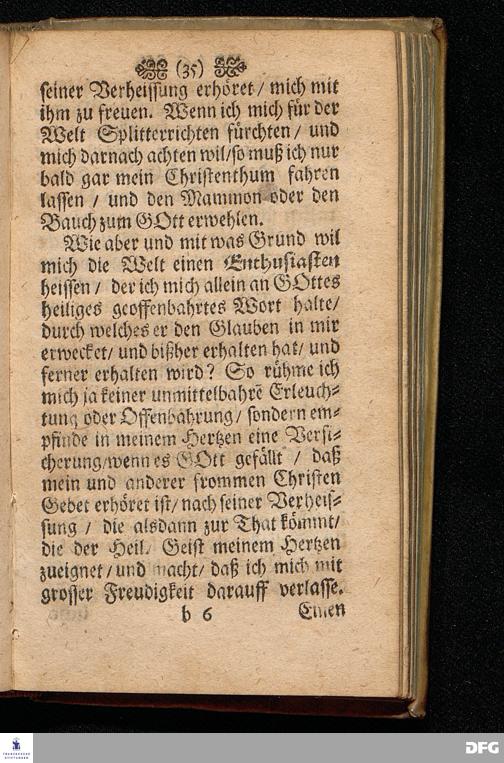 (35)
seiner Verheissung erhöret / mich mit
ihm zu freuen. Wenn ich mich für der
Welt Splitterrichten fürchten / und
mich darnach achten wil / so muß ich nur
bald gar mein Christenthum fahren
lassen / und den Mammon oder den
Bauch zum GOtt erwehlen.
Wie aber und mit was Grund wil
mich die Welt einen Enthusiasten
heissen / der ich mich allein an GOttes
heiliges geoffenbahrtes Wort halte /
durch welches er den Glauben in mir
erwecket / und bißher erhalten hat / und
ferner erhalten wird? So rühme ich
mich ja keiner unmittelbahrẽ Erleuch-
tung oder Offenbahrung / sondern em-
pfinde in meinem Hertzen eine Versi-
cherung / wenn es GOtt gefällt / daß
mein und anderer frommen Christen
Gebet erhöret ist / nach seiner Verheis-
sung / die alsdann zur That kömmt /
die der Heil. Geist meinem Hertzen
zueignet / und macht / daß ich mich mit
grosser Freudigkeit darauff verlasse.
b 6 Einen
FRANCKESCHE
STIFTUNGEN
DFG